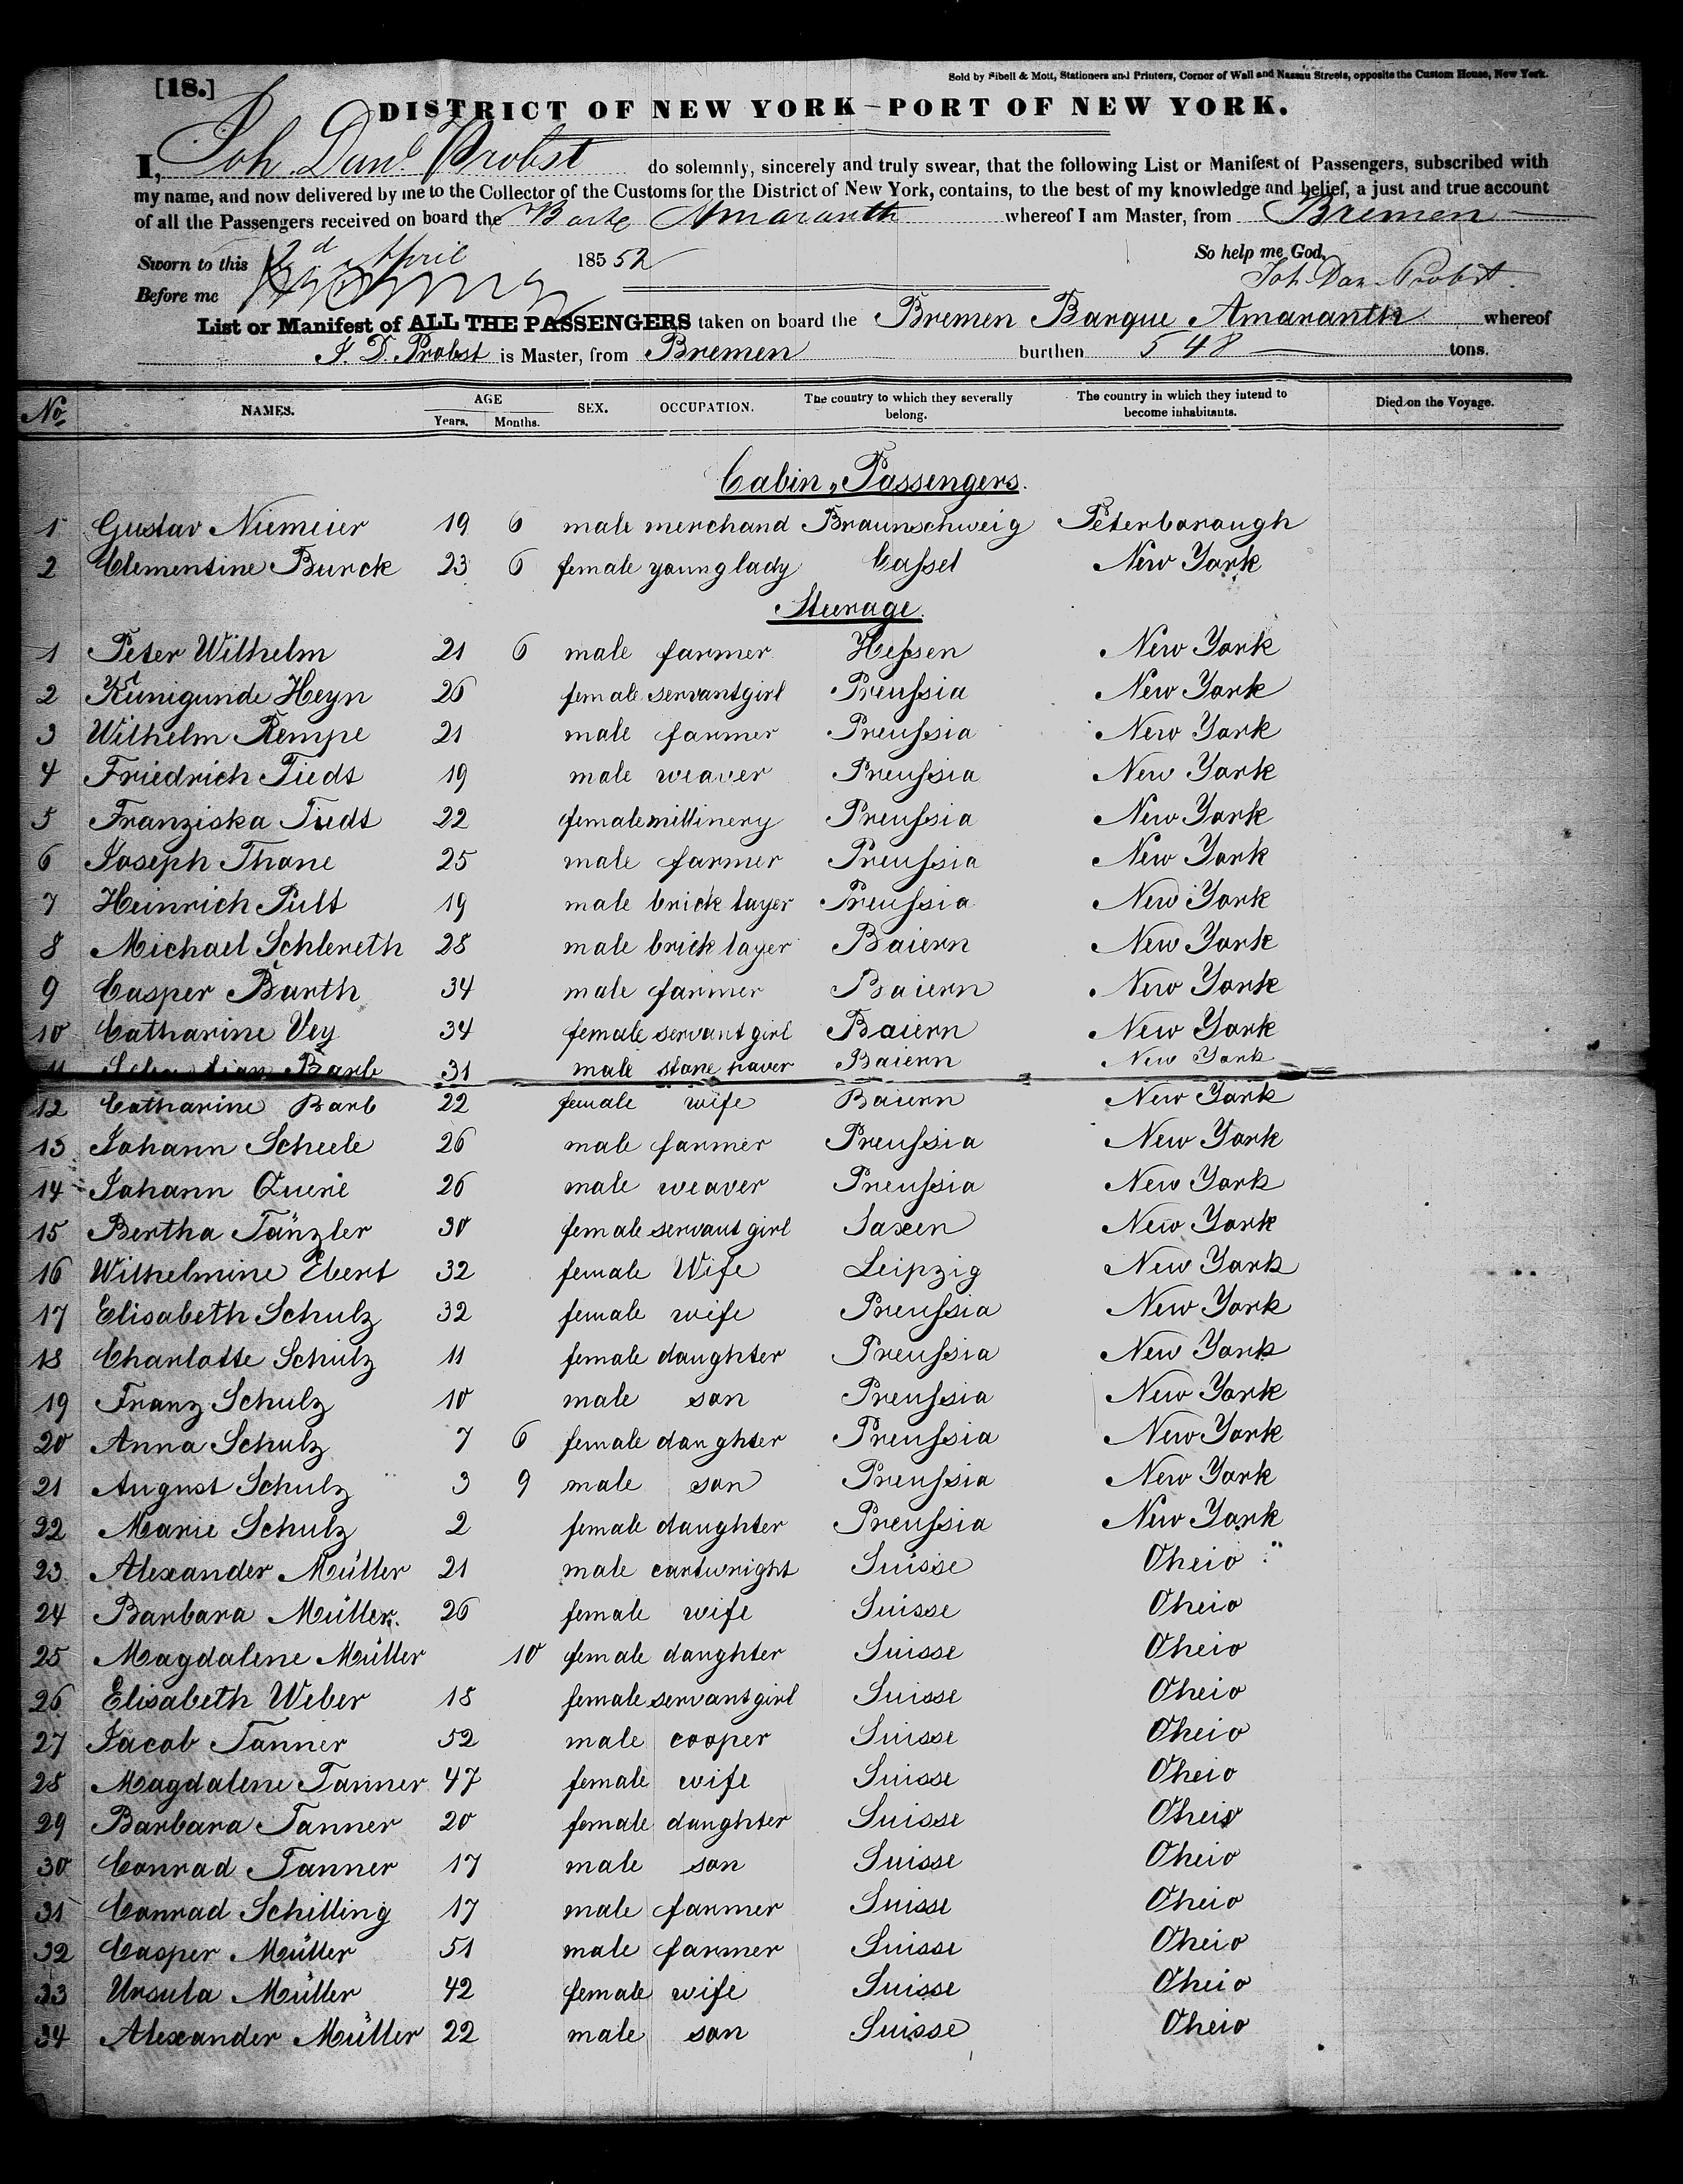 [18.]
Sold by Fibell & Mott, Stationers and Printers, Corner of Wall and Nassau Streets, opposite the Custom House, New York.
DISTRICT OF NEW YORK—PORT OF NEW YORK.
I, Joh. Danl. Probst do solemnly, sincerely and truly swear, that the following List or Manifest of Passengers, subscribed with
my name, and now delivered by me to the Collector of the Customs for the District of New York, contains, to the best of my knowledge and belief, a just and true account
of all the Passengers received on board the Barke Amaranth whereof I am Master, from Bremen
Sworn to this 2d April 185 52 So help me God,
Before me Joh Dan Probst.
List or Manifest of ALL THE PASSENGERS taken on board the Bremen Barque Amaranth whereof
J. D. Probst is Master, from Bremen burthen 548 tons.
No. NAMES. AGE Years. Months. SEX. OCCUPATION. The country to which they severally belong. The country in which they intend to become inhabitants. Died on the Voyage.
Cabin-Passengers.
1 Gustav Niemeier 19 6 male merchand Braunschweig Peterborough
2 Clementine Burck 23 6 female young lady Cassel New York
Steerage.
1 Peter Wilhelm 21 6 male farmer Hessen New York
2 Kunigunde Heyn 26 female servantgirl Preussia New York
3 Wilhelm Rempe 21 male farmer Preussia New York
4 Friedrich Tieds 19 male weaver Preussia New York
5 Franziska Tieds 22 female millinery Preussia New York
6 Joseph Thone 25 male farmer Preussia New York
7 Heinrich Pult 19 male brick layer Preussia New York
8 Michael Schlereth 28 male brick layer Baiern New York
9 Casper Barth 34 male farmer Baiern New York
10 Catharine Vey 34 female servant girl Baiern New York
11 Barb 31 male stone haver Baiern New York
12 Catharine Barb 22 female wife Baiern New York
13 Johann Scheele 26 male farmer Preussia New York
14 Johann Querie 26 male weaver Preussia New York
15 Bertha Tänzler 30 female servant girl Saxen New York
16 Wilhelmine Ebert 32 female Wife Leipzig New York
17 Elisabeth Schulz 32 female wife Preussia New York
18 Charlotte Schulz 11 female daughter Preussia New York
19 Franz Schulz 10 male son Preussia New York
20 Anna Schulz 7 6 female daughter Preussia New York
21 August Schulz 3 9 male son Preussia New York
22 Marie Schulz 2 female daughter Preussia New York
23 Alexander Müller 21 male cartwright Suisse Oheio
24 Barbara Müller. 26 female wife Suisse Oheio
25 Magdalene Müller 10 female daughter Suisse Oheio
26 Elisabeth Weber 18 female servantgirl Suisse Oheio
27 Jacob Tanner 52 male cooper Suisse Oheio
28 Magdalene Tanner 47 female wife Suisse Oheio
29 Barbara Tanner 20 female daughter Suisse Oheio
30 Conrad Tanner 17 male son Suisse Oheio
31 Conrad Schilling 17 male farmer Suisse Oheio
32 Casper Müller 51 male farmer Suisse Oheio
33 Ursula Müller 42 female wife Suisse Oheio
34 Alexander Müller 22 male son Suisse Oheio